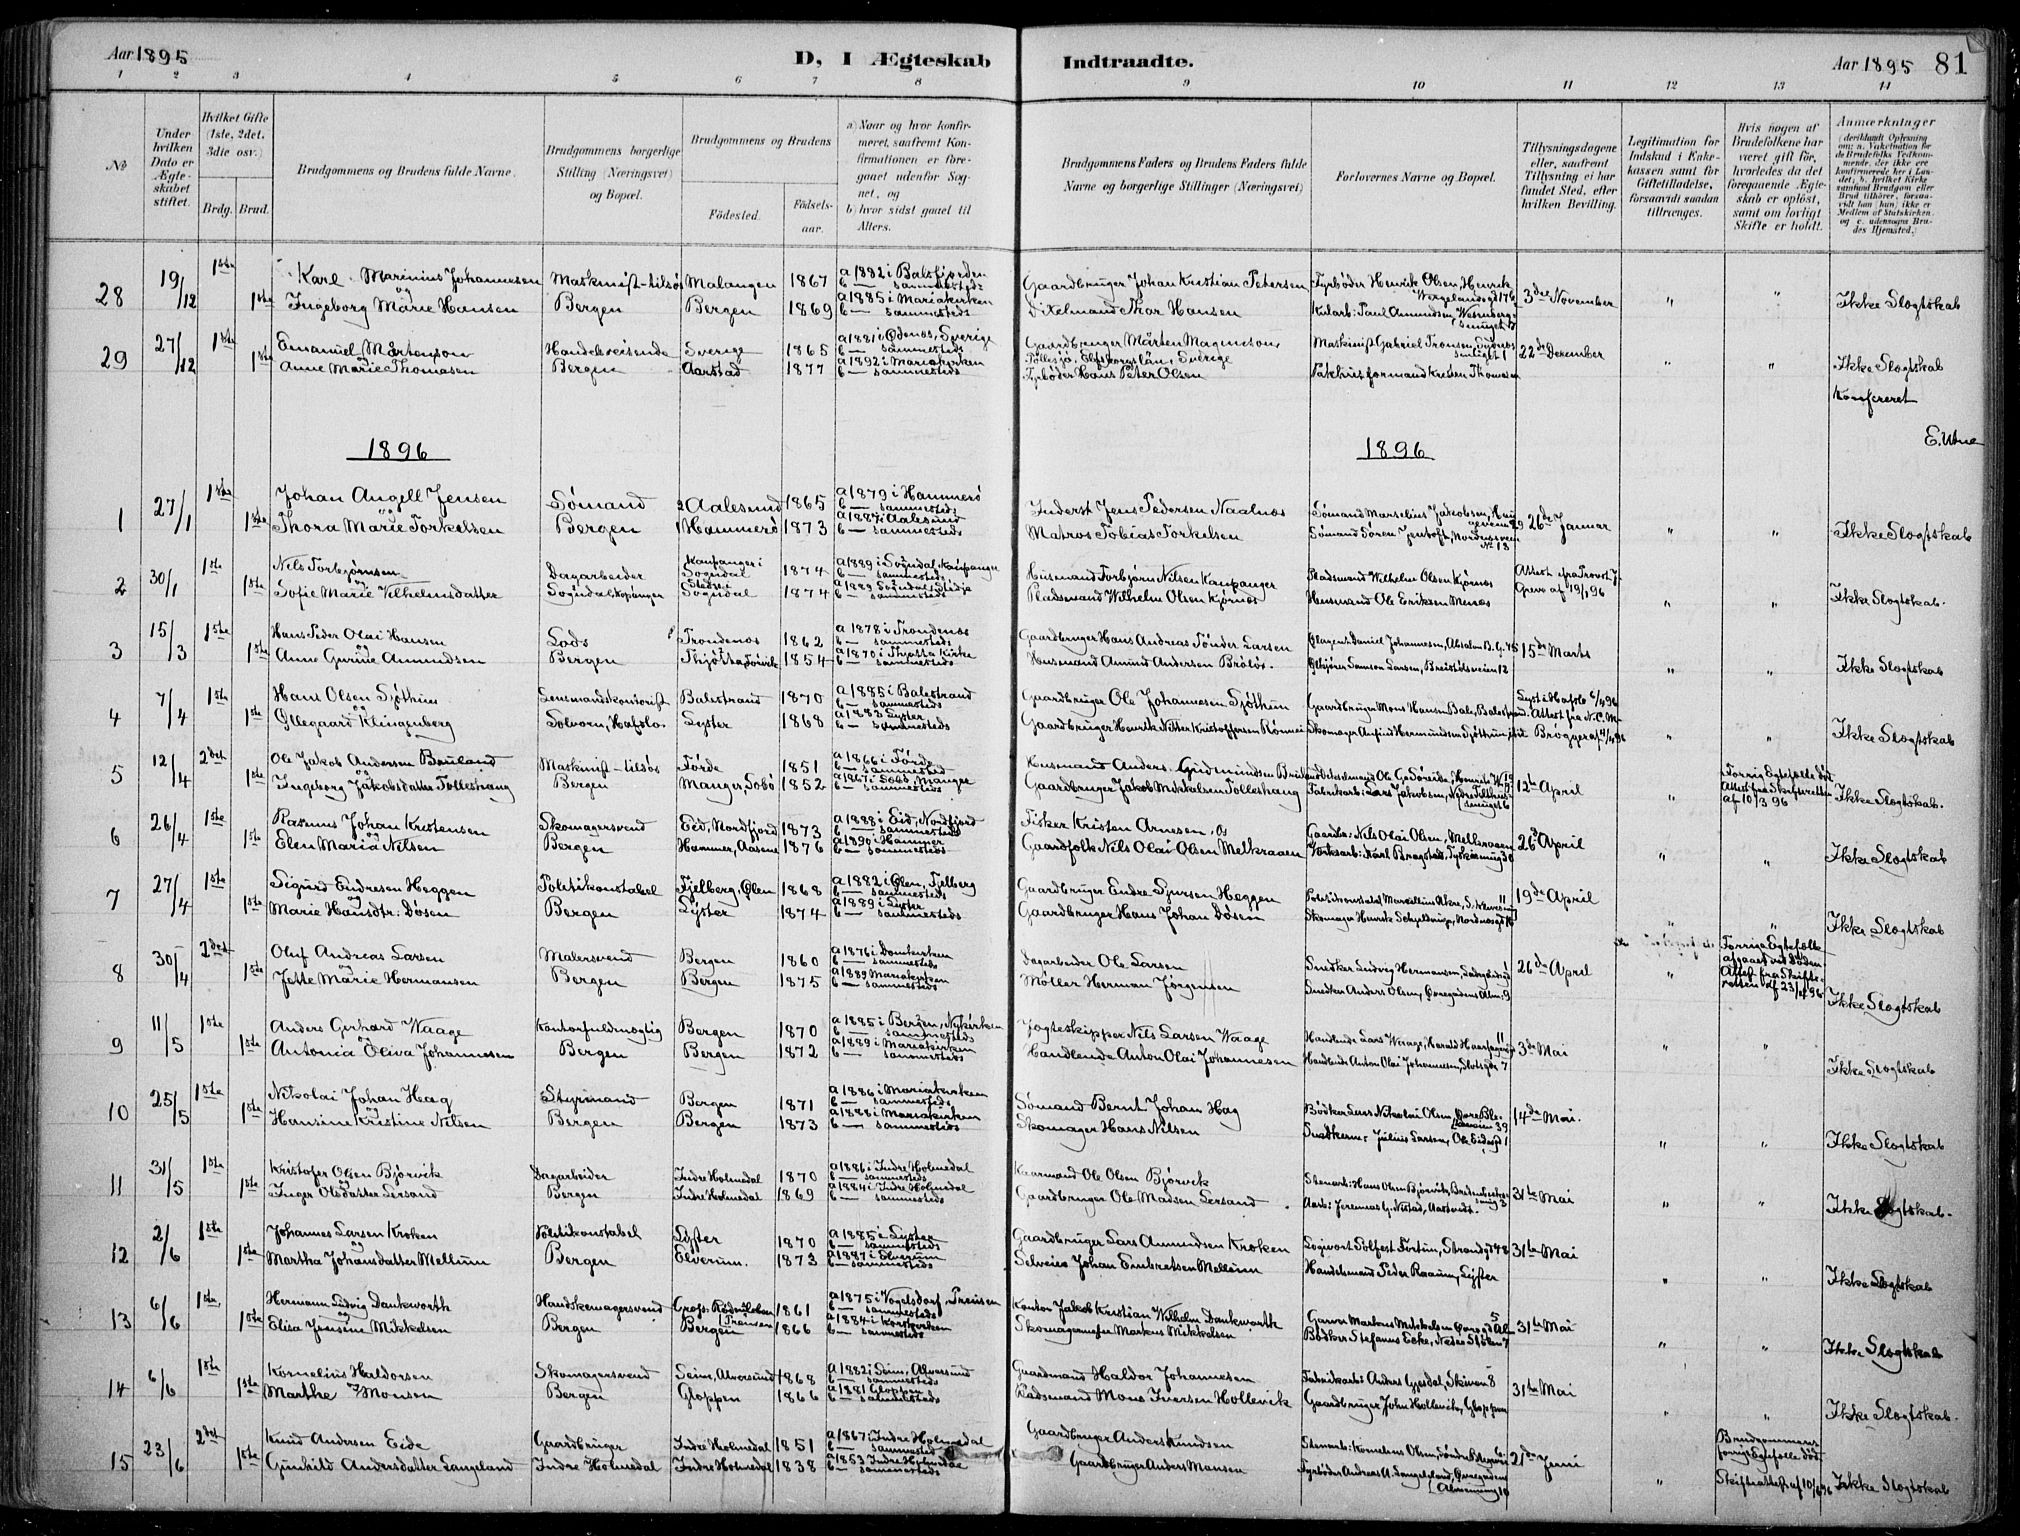 Aar 1895
D, I Ægteskab
Indtraadte.
Aar 1895 81
1 2 3 4 5 6 7 8 9 10 11 12 13 14
No
Under hvilken Dato er Ægteskabet stiftet.
Hvilket Gifte (1ste, 2det, 3die osv.)
Brdg. Brud.
Brudgommens og Brudens fulde Navne.
Brudgommens borgerlige Stilling (Næringsvei) og Bopæl.
Brudgommens og Brudens
Fødested.
Fødselsaar.
a) Naar og hvor konfirmeret, saafremt Konfirmationen er foregaaet udenfor Sognet, og
b) hvor sidst gaaet til Alters.
Brudgommens Faders og Brudens Faders fulde Navne og borgerlige Stillinger (Næringsvei)
Forlovernes Navne og Bopæl.
Tillysningsdagene eller, saafremt Tillysning ei har fundet Sted, efter hvilken Bevilling.
Legitimation for Indskud i Enkekassen samt for Giftetilladelse, forsaavidt saadan tiltrænges.
Hvis nogen af Brudefolkene har været gift før, hvorledes da det foregaaende Ægteskab er opløst, samt om lovligt Skifte er holdt.
Anmærkninger
28 19/12 1ste Karl Marinius Johannesen Maskinist-tilsøs Malangen 1867 a 1882 i Balsfjorden b — sammesteds Gaardbruger Johan Kristian Petersen Fyrbøder Henrik Olsen, Henrik Wergelandsgd 17 b 3die November " " Ikke Slegtskab
og
1ste Ingeborg Marie Hansen Bergen Bergen 1869 a 1885 i Mariakirken b — sammesteds Dixelmand Thor Hansen Paul Amundsen
29 27/12 1ste Emanuel Mårtenson Handelsreisende Sverige 1865 a 1881 i Ødenæs, Sverige b — sammesteds Gaardbruger Mårten Magnuson, Elfsborgslän, Sverige Maskinist Gabriel Tronsen, 22de December " " Ikke Slegtskab
og
1ste Anne Marie Thomasen Bergen Aarstad 1877 a 1892 i Mariakirken b — sammesteds Fyrbøder Hans Peter Olsen Pakhusformand Thomasen
Konfereret
E. Utne
1896
1896
1 27/1 1ste Johan Angell Jensen Sømand 2 Aalesund 1865 a 1879 i Hammerø b — sammesteds Inderst Jens Pedersen Naalnæs Sømand Marselius Jakobsen, 26de Januar " " Ikke Slegtskab
og
1ste Thora Marie Torkelsen Bergen 1 Hammerø 1873 a 1887 i Aalesund b — sammesteds Matros Tobias Torkelsen Sømand Søren Jentoft, Nordnæsveien No 18
2 30/1 1ste Nils Torbjørnsen Dagarbeider Kaupanger i Sogndal 1874 a 1889 i Sogndal, Kaupanger b — sammesteds Husmand Torbjørn Nilsen Kaupanger Pladsmand Wilhelm Olsen Kjørnæs Attest fra Provst J. Greve af 19/1 96 " " Ikke Slegtskab.
og
1ste Sofie Marie Vilhelmsdatter Sogndal Kopanger Sogndal 1874 a 1889 Sogndal, Stedje b — sammesteds Pladsmand Wilhelm Olsen Kjørnæs Husmand Ole Eriksen
3 15/3 1ste Hans Peder Olai Hansen Lods Trondenæs 1862 a 1878 i Trondenæs b — sammesteds Gaardbruger Hans Andreas Tønder Larsen Daniel Johannesen, Absalon B. G. 15de Marts " " Ikke Slegtskab
og
1ste Anne Gurine Amundsen Bergen Thjøtta 1854 a 1870 i Thjøtta Kirke b — sammesteds Husmand Amund Andersen Samson Larsen, Breistølsveien 12
4 7/4 1ste Hans Olsen Sjøthun Lensmandskontorist Balestrand 1870 a 1885 i Balestrand b — sammesteds Gaardbruger Ole Johannesen Sjøthun Gaardbruger Mons Hansen Bale, Balestrand. Lyst i Hafslo 6/4 96 Attest fra N. C. M. Brøgger af 4/4 96 " " Ikke Slegtskab
og
1ste Øllegaard Klingenberg Solvorn, Hafslo Lyster 1868 a 1883 Lyster b — sammesteds Gaardbruger Henrik Nitter Kristoffersen Rønnei Skomager Anfind Hermundsen Sjøthun
5 12/4 2det Ole Jakob Andersen Bruland Maskinist-tilsøs Førde 1851 a 1866 i Førde b — sammesteds Husmand Anders Gudmundsen Bruland Ole G. Søreide, 12te April " Forrige Egtefælle død Attest fra Skifteretten af 10/3 96 Ikke Slegtskab.
og
1ste Ingeborg Jakobsdatter Tolleshaug Bergen Manger, Sæbø 1852 a 1867 i Sæbø, Manger b — sammesteds Gaardbruger Jakob Mikkelsen Tolleshaug Fabrikarb: Lars Jakobsen,
6 26/4 1ste Rasmus Johan Kristensen Skomagersvend Eid, Nordfjord 1873 a 1888 i Eid, Nordfjord b — sammesteds Fisker Kristen Arnesen, Os Gaardbr: Nils Olai Olsen, Melkraaen 26de April " " Ikke Slegtskab
og
1ste Elen Maria Nilsen Bergen Hammer, Aasene 1876 a 1890 i Hammer b — sammesteds Gaardfolk Nils Olai Olsen Melkraaen Karl Brogstad,
7 27/4 1ste Sigurd Endresen Heggen Politikonstabel Fjelberg, Ølen 1868 a 1882 i Ølen, Fjelberg b — sammesteds Gaardbruger Endre Sjursen Heggen Politikonstabel Marsellius Akre, 19de April " " Ikke Slegtskab
og
1ste Marie Hansdtr: Døsen Bergen Lyster 1874 a 1889 i Lyster b — sammesteds Gaardbruger Hans Johan Døsen Skomager Henrik Schjeldrup, Nordnæsgd 16
8 30/4 2det Oluf Andreas Larsen Malersvend Bergen 1860 a 1876 i Domkirken b — sammesteds Dagarbeider Ole Larsen Snedker Ludvig Hermansen, 26de April " Forrige Egtefælle afgaaet ved Døden Attest fra Skifteretten af 23/4 96 Ikke Slegtskab
og
1ste Jette Marie Hermansen Bergen Bergen 1875 a 1889 Mariakirken b — sammesteds Møller Herman Jørgensen Snedker Anders Olsen, Øvregadens Alm: 9
9 11/5 1ste Anders Gerhard Waage Kontorfuldmægtig Bergen 1870 a 1885 i Bergen, Nykirken b — sammesteds Jagteskipper Nils Larsen Waage Handlende Lars Waage, Harald Haarfagersgd 3die Mai " " Ikke Slegtskab
og
1ste Antonia Oliva Johannesen Bergen Bergen 1872 a 1889 i Mariakirken b — sammesteds Handlende Anton Olai Johannesen Handlende Anton Olai Johannesen, Slotsgd 7
10 25/5 1ste Nikolai Johan Haag Styrmand Bergen 1871 a 1886 i Mariakirken b — sammesteds Sømand Bernt Johan Hag Bødker Lars Nikolai Olsen, Øvre 39 14de Mai. " " Ikke Slegtskab
og
1ste Hansine Kristine Nilsen Bergen Bergen 1873 a 1888 i Mariakirken b — sammesteds Skomager Hans Nilsen Snedkerm: Julius Larsen, 1
11 31/5 1ste Kristofer Olsen Bjørvik Dagarbeider Indre Holmedal 1870 a 1886 i Indre Holmedal b — sammesteds Kaarmand Ole Olsen Bjørvik Stenarb: Hans Olsen Bjørvik, 31te Mai " " Ikke Slegtskab.
og
1ste Inger Olsdatter Lersand Bergen Indre Holmedal 1869 a 1884 i Indre Holmedal b — sammesteds Gaardbruger Ole Madsen Lersand Aarb: Jeremias G. Nistad, Aastvedt.
12 2/6 1ste Johannes Larsen Kroken Politikonstabel Lyster 1870 a 1885 i Lyster b — sammesteds Gaardbruger Lars Amundsen Kroken Logivært Solfest Fortun, Strandgd 48 31te Mai " " Ikke Slegtskab
og
1ste Martha Johansdatter Mellum Bergen Elverum. 1873 a 1887 i Elverum b — sammesteds Selveier Johan Embretsen Mellum Handelsmand Peder Raaum, Lyster
13 6/6 1ste Hermann Ludvig Dankworth Handskemagersvend Gross. Rodensleben Preusen 1861 a 1875 i Vogelsdorf, Preusen b — sammesteds Kantor Jakob Kristian Wilhelm Dankworth Garver Markus Mikkelsen 31te Mai " " Ikke Slegtskab
og
1ste Elisa Jensine Mikkelsen Bergen Bergen 1866 a 1884 i Korskirken b — sammesteds Skomagermester Markus Mikkelsen Bødker Stefanus Ecke, Nedre Stølen 7
14 6/6 1ste Kornelius Haldorsen Skomagersvend Seim, Alversund 1868 a 1882 i Seim, Alversund b — sammesteds Gaardmand Haldor Johannesen Fabrikarb: Anders Gjesdal, Skiven 8 31te Mai " " Ikke Slegtskab.
og
1ste Marthe Monsen Bergen Gloppen 1866 a 1881 Gloppen b — sammesteds Pladsmand Mons Iversen Hollevik Gaardbruger John Hollevik, Gloppen
15 23/6 2det Knud Andersen Eide Gaardbruger Indre Holmedal 1851 a 1867 i Indre Holmedal b — sammesteds Gaardbruger Anders Knudsen Stenarb: Kornelius Olsen, 21de Juni " Brudgommens forrige Egtefælle død Skifteattest af 10/6 96 Ikke Slegtskab
1ste Gunhild Andersdatter Langeland Indre Holmedal Indre Holmedal 1838 a 1853 Indre Holmedal b — sammesteds Gaardbruger Anders Mansen Fyrbøder Andreas A. Langeland, Øvregadens Almenning 10